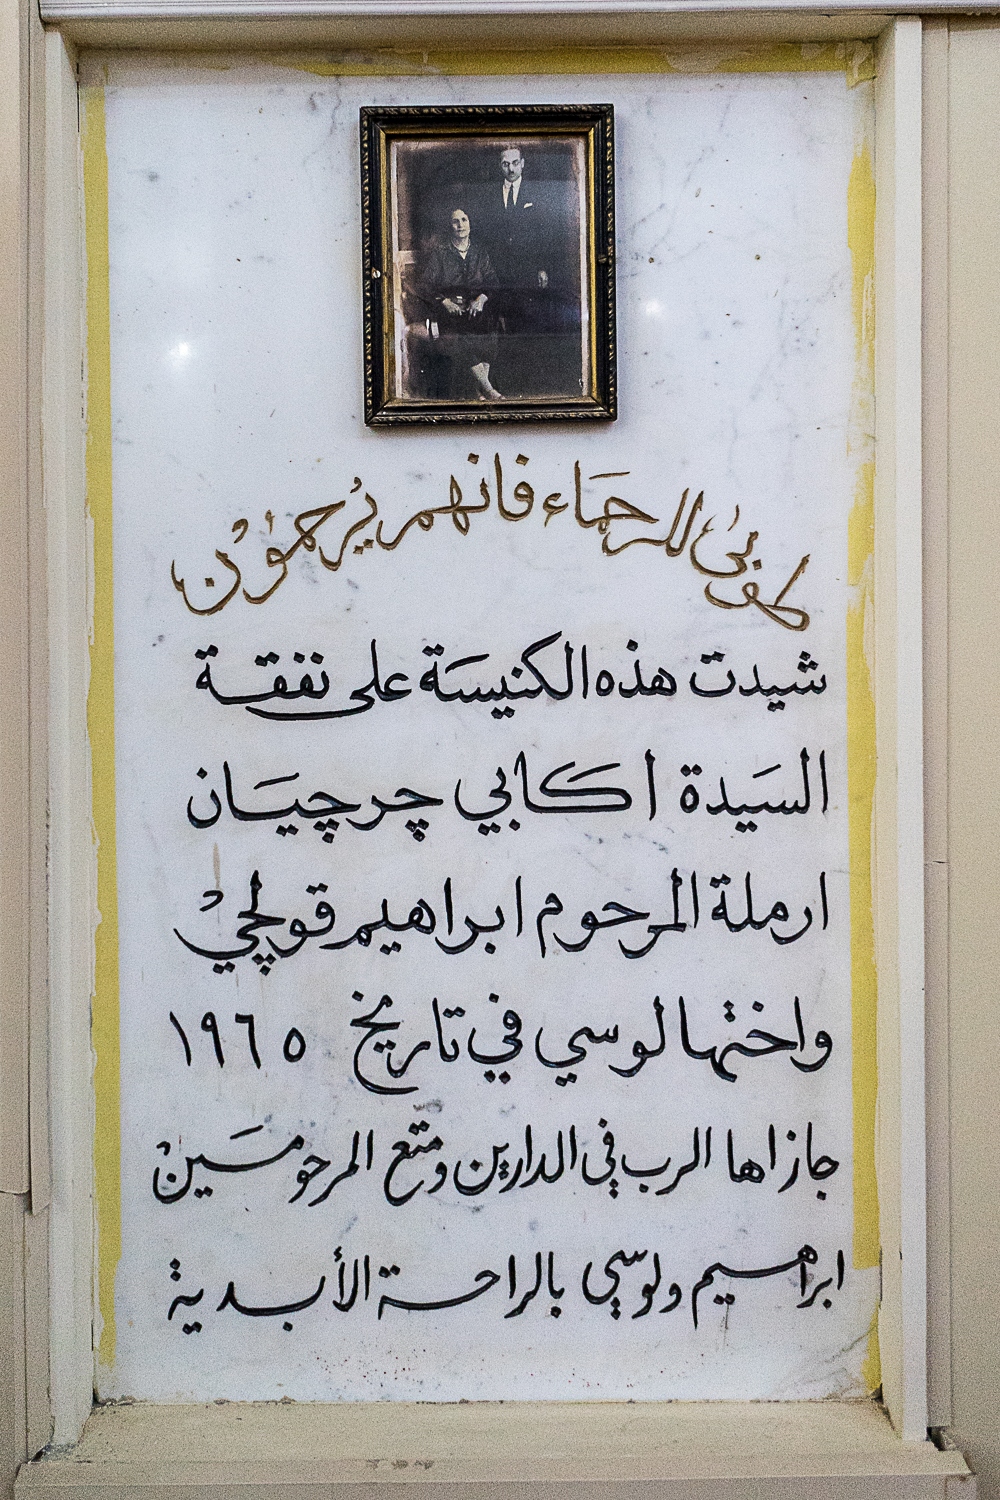 طوبى للرحماء فانهم يُرحمون
شيدت هذه الكنيسة على نفقة
السَيدة اكابي چرچيَان
ارملة المرحوم ابراهيم قولچي
واختها لوسي في تاريخ ١٩٦٥
جازاها الرب في الدارين ومتع المرحومَين
ابراهيم ولوسي بالراحة الأبدية